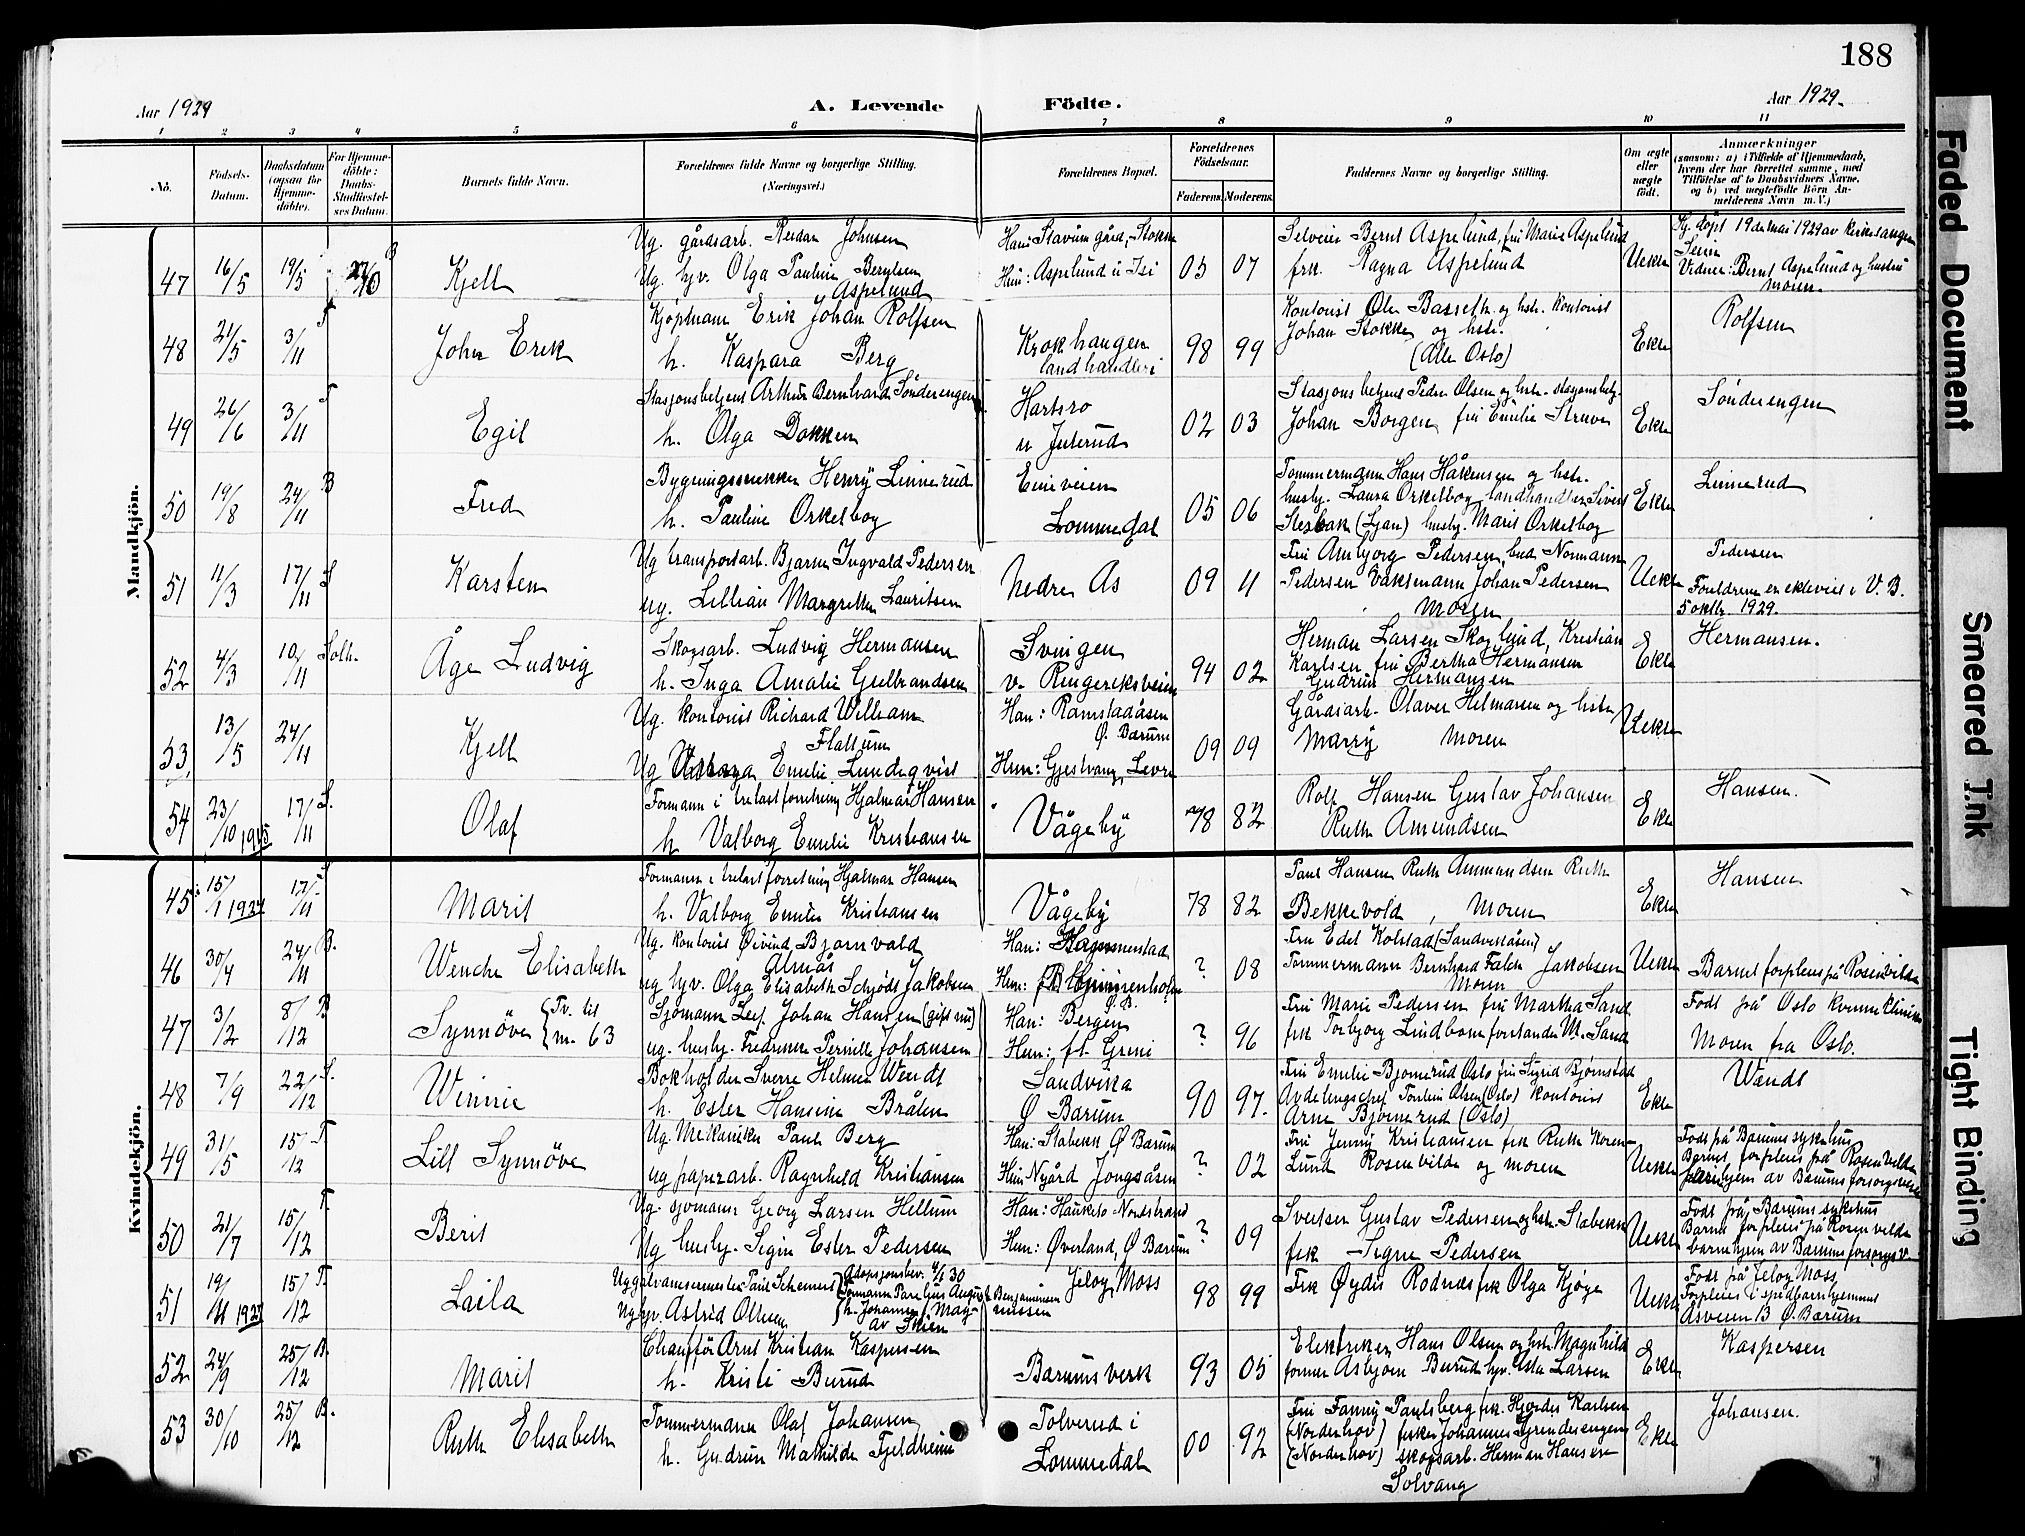 188
Aar 1929
A. Levende Födte.
Aar 1929.
1 2 3 4 5 6 7 8 9 10 11
No.
Födsels-
Datum.
Daabsdatum
(ogsaa for
Hjemme-
döbte).
For Hjemme-
döbte:
Daabs-
Stadfæstel-
ses Datum.
Barnets fulde Navn.
Forældrenes fulde Navne og borgerlige Stilling.
(Næringsvei.)
Forældrenes Bopæl.
Forældrenes
Födselsaar.
Faderens. Moderens.
Faddernes Navne og borgerlige Stilling.
Om ægte
eller
uægte
födt.
Anmærkninger
(saasom: a) i Tilfælde af Hjemmedaab,
hvem der har forrettet samme, med
Tilföielse af to Daabsvidners Navne,
og b) ved uægtefödte Börn An-
melderens Navn m. V.)
Mandkjön.
47 16/5 19/5 Kjell
Ug. gårdsarb. Reidar Johnsen
Ug. hjv. Olga Pauline Berntsen
Aspelund
Han: Stavum gård, Stokke
Hun: Aspelund i Isi
05 07
Selveier Bernt Aspelund, fru Marie Aspelund
frk. Ragna Aspelund
Uekte
Hj. døpt 19de mai 1929 av kirkesanger
Vidner: Bernt Aspelund og hustru
moren.
48 21/5 3/11 John Erik
Kjøpmann Erik Johan Rolfsen
h. Kaspara Berg
Krokhaugen
landhandleri
98 99
Kontorist Ole Basseth og hstr. kontorist
Johan Stokke og hstr.
(Alle Oslo)
Ekte
Rolfsen
49 26/6 3/11 Egil
Stasjonsbetjent Arthur Bernhard Sønderengen
h. Olga Dokken
02 03
Stasjonsbetjent Peder Olsen og hstr. stasjonsbetj.
Johan Borgen, fru Emilie Struve
Ekte
Sønderengen
50 19/8 24/11 B Fred
Henry Linnerud
h. Pauline Orkelbog
Eineveien
Lommedal
05 06
Tømmermann Hans Håkensen og hstr.
husby. Laura Orkelbog landhandler Sivert
(Ljan) husby. Marit Orkelbog
Ekte
Linnerud
51 11/3 17/11 S Karsten
Ug transportarb. Bjarne Ingvald Pedersen
ug. Lillian Margrethe Lauritsen
Nedre As
09 11
Fru Ambjørg Pedersen, bud Normann
Pedersen vaktmann Johan Pedersen
moren
Uekte
Pedersen
Foreldrene er ekteviet i V. B.
5 oktbr 1929.
52 4/3 10/11 Solh. Åge Ludvig
Skogsarb. Ludvig Hermansen
h. Inga Amalie Gulbrandsen
Svingen
v. Ringeriksveien
94 02
Herman Larsen Skoglund, Kristian
Karlsen fru Bertha Hermansen
Gudrun Hermansen
Ekte
Hermansen.
53 13/5 24/11 Kjell
Ug. kontorist Richard William
Flattum
Ug Emilie Lundeqvist
Han: Ramstadåsen
Ø. Bærum
Hun: Gjestvang, Levre
09 09
Gårdsarb. Olaver Helmersen og hstr
Marry moren
Uekte
54 23/10 1915 17/11 S. Olaf
Formann i trelastforretning Hjalmar Hansen
h Valborg Emilie Kristiansen
Vågeby
78 82
Rolf Hansen Gustav Johansen
Ruth Amundsen
Ekte
Hansen.
Kvindekjön.
45 15/1 1927 17/11 Marit
Formann i trelastforretning Hjalmar Hansen
h. Valborg Emilie Kristiansen
Vågeby
78 82
Paul Hansen Ruth Ammundsen Ruth
Bekkevold, Moren
Ekte
Hansen
46 30/4 24/11 B. Wenche Elisabeth
Ug. kontorist Øivind Bjørnvald
Almås
ug hjv. Olga Elisabeth Schjødt Jakobsen
Han:
Hun:
? 08
Fru Edel Kolstad (Sandvikåsen)
Tømmermann Bernhard Falch Jakobsen
Moren
Uekte
Barnet forpleies på Rosenvilde
47 3/2 8/12 B Synnöve {Tv. til
nr. 63
Sjømann Leif Johan Hansen (gift nu)
ug. husby. Fredrikke Pernille Johansen
Han: Bergen
Hun: ft. Grini
Ø. B.
? 96
Fru Marie Pedersen fru Martha Sand
frk Torbjørg Lindbom forstander M. Sand
Født på Oslo kvinneklinikk
Moren fra Oslo.
48 7/9 22/12 S. Winnie
Bokholder Sverre Helmer Wendt
h. Ester Hansine Bråten
Sandvika
Ø Bærum
90 97.
Fru Emilie Bjørnerud Oslo fru Sigrid Bjørnstad
Avdelingschef Torleiv Olsen (Oslo) kontorist
Arne Bjørnerud (Oslo)
Ekte
Wendt
49 31/5 15/12 T. Lill Synnöve
Ug. Mekaniker Paul Berg
ug papirarb. Ragnhild Kristiansen
Han: Stabekk Ø Bærum
Hun Nygård Jongsåsen
? 02
Fru Jenny Kristiansen frk Ruth Koren-
Lund Rosenvilde og moren
Uekte
Født på Bærums sykehus
Barnet forpleies på Rosenvilde
av Bærums forsorgsvesen
50 21/7 15/12 T. Berit
Ug. sjømann Georg Larsen Hellum
Ug husby. Signe Ester Pedersen
Han: Hauketo Nordstrand
Hun: Øverland, Ø Bærum
? 09
Sveiser Gustav Pedersen og hstr. Stabekk
frk Signe Pedersen
Uekte
Født på Bærums sykehus
Barnet forpleies på Rosenvilde
barnehjem av Bærums forsorgsv.
51 19/11 1927 15/12 T. Laila
Ug hjv. Astrid Olsen
Adopsjonsbev. 4/1 30
av Skien
Jeløy, Moss
98 99
Frk Øydis Rodnæs frk Olga Kjøge
Uekte
Født på Jeløy Moss
Forpleies i spedbarnhjemmet
Åsveien B Ø. Bærum
52 24/9 25/12 B. Marit
Chauffør Arnt Kristian Kaspersen
h. Kristi Burud
Bærums verk
93 05
Elektriker Hans Olsen og hstr. Magnhild
former Asbjørn Burud hjv. Asta Larsen
Ekte
Kaspersen
53 30/10 25/12 B. Ruth Elisabeth
Tømmermann Olaf Johansen
h. Gudrun Mathilde Fjeldheim
Tolverud i
Lommedal
00 92
Fru Fanny Paulsberg frk. Hjørdis Karlsen
(Norderhov) frsker Johannes Grenderengen
(Norderhov) skogsarb. Herman Hansen
Solvang
Ekte
Johansen.
Faded Document
Smeared Ink
Tight Binding